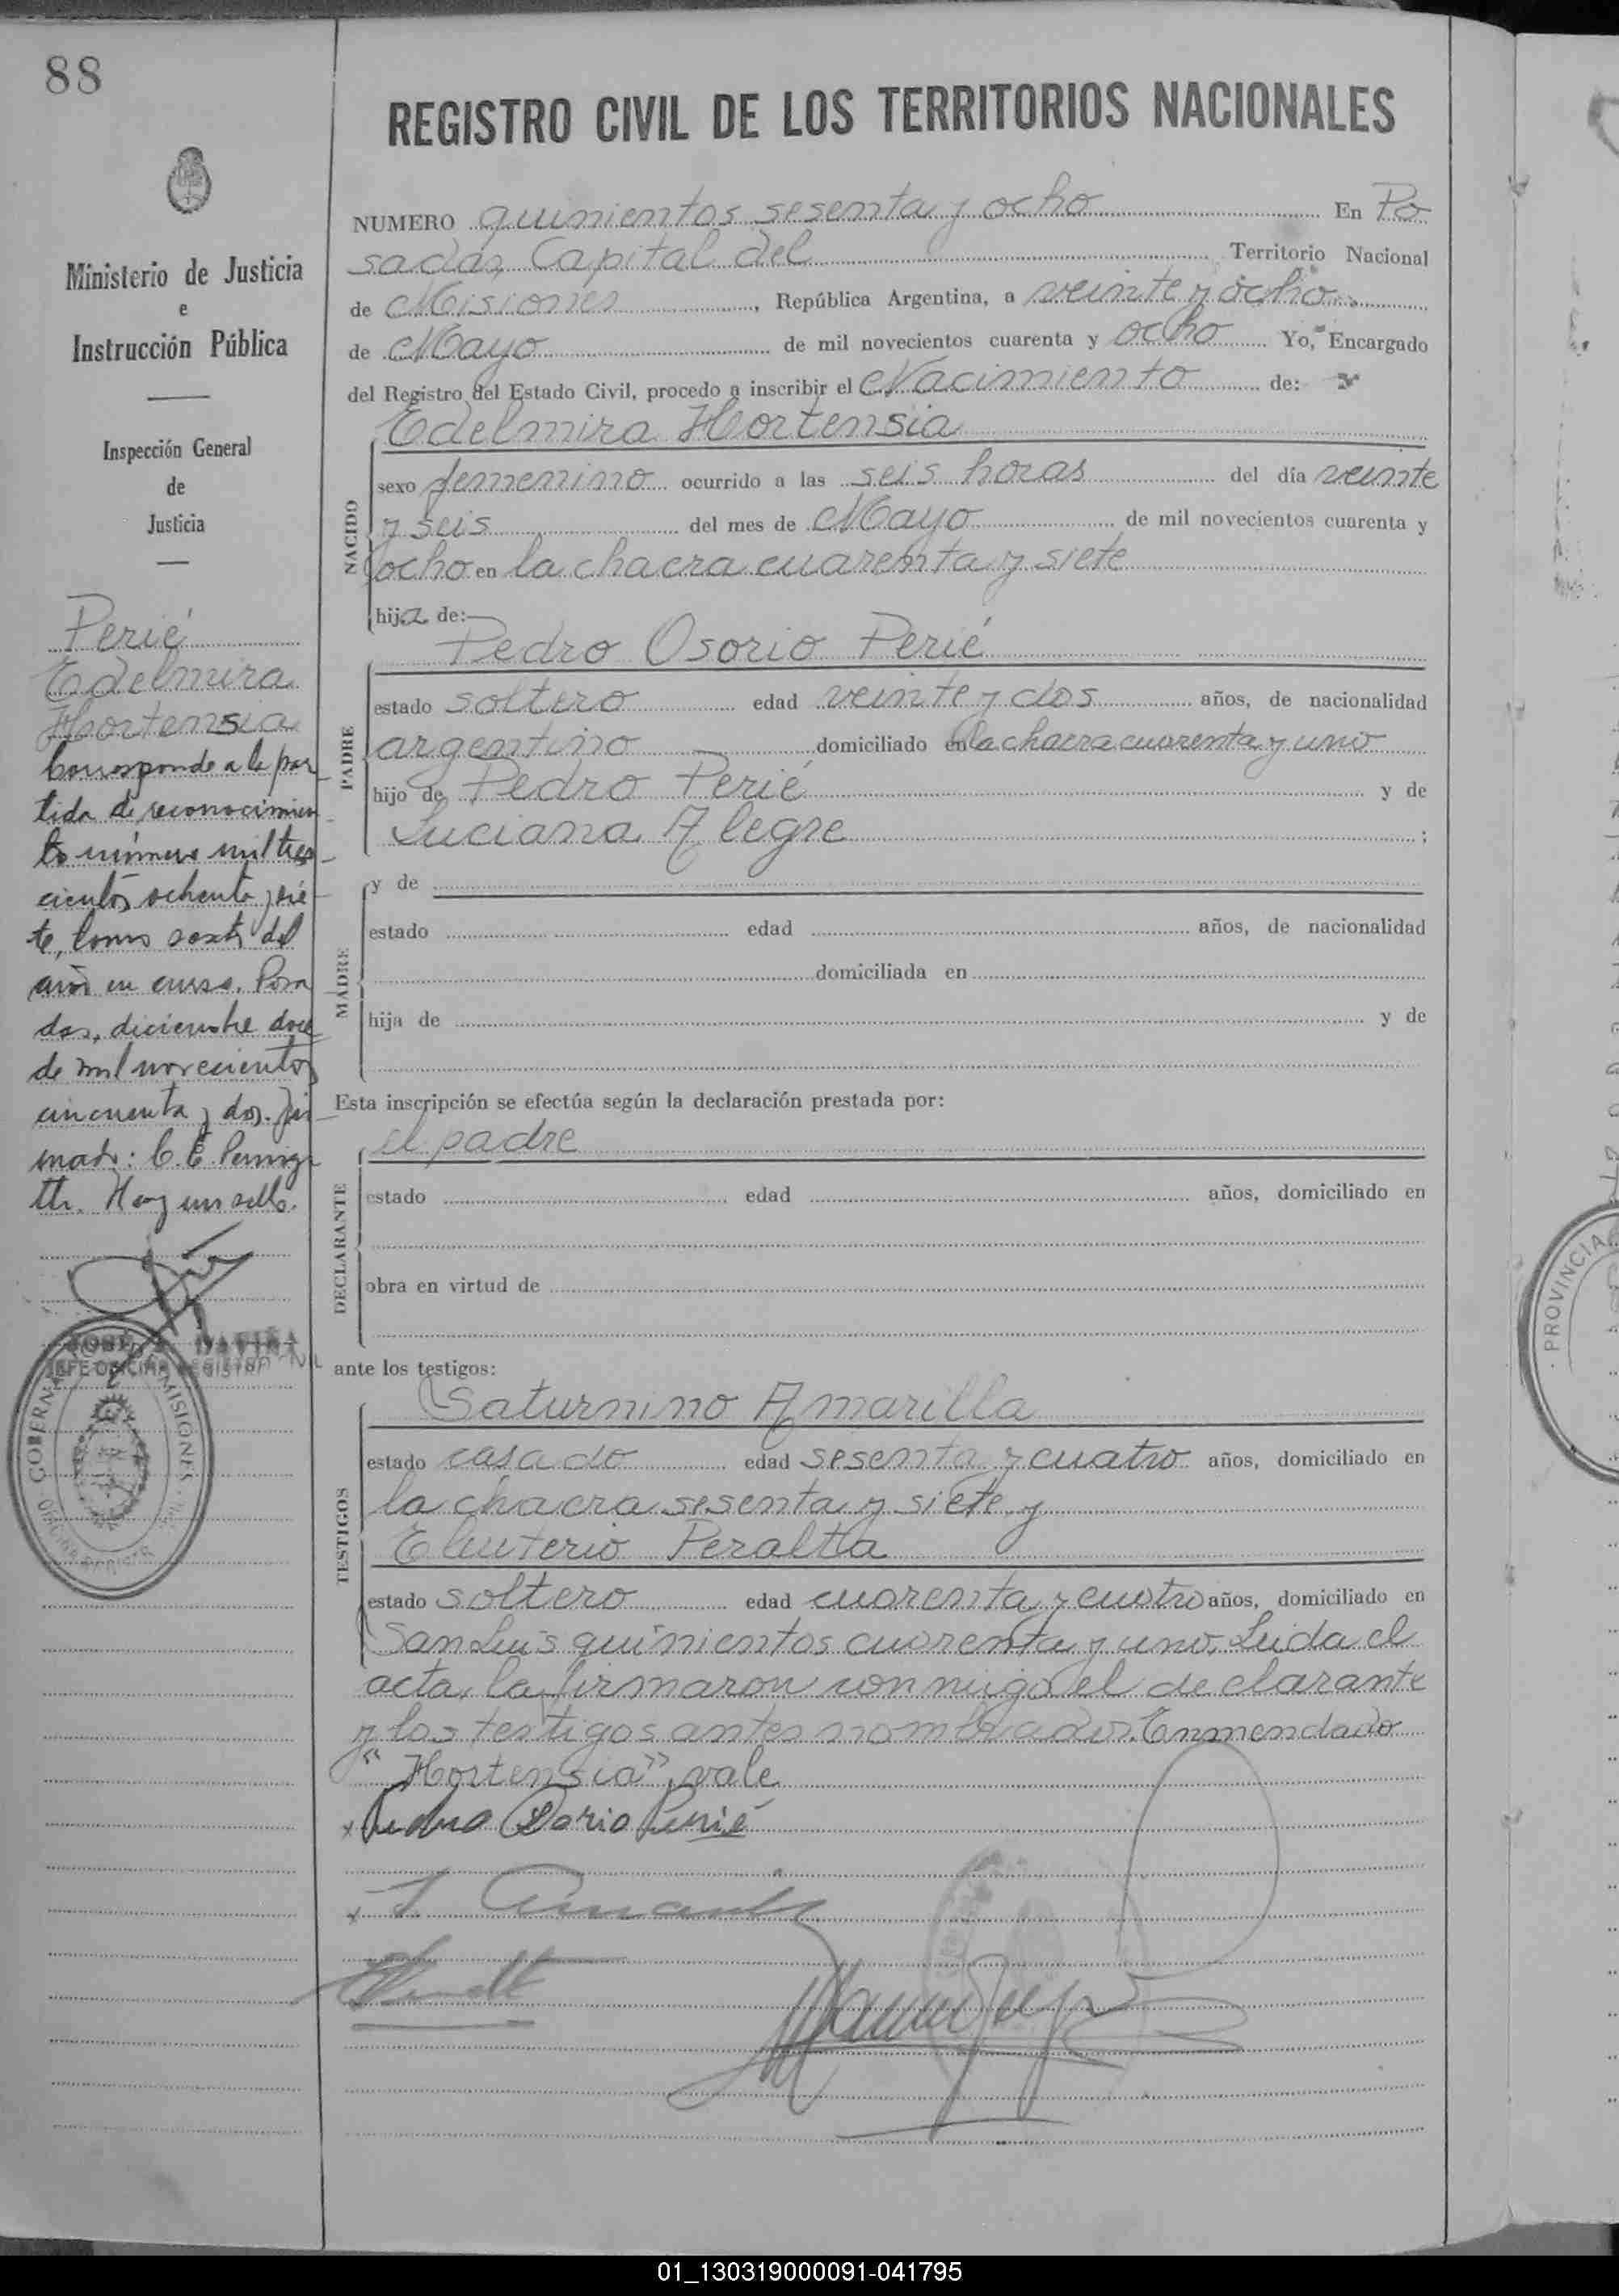 88
REGISTRO CIVIL DE LOS TERRITORIOS NACIONALES
Ministerio de Justicia
e
Instrucción Pública
Inspección General
de
Justicia
Perié
Edelmira
Hortensia
Corresponde a la par
tida de reconocimien
to número mil tres
cientos ochenta y sie
te, tomo sexto del
año en curso. Posa
das, diciembre doce
de mil novecientos
cincuenta y dos. Fir
mado: C. E.
Hay un sello.
JOSE DAVIÑA
JEFE OFICINA REGISTRO CIVIL
GOBERN MISIONES
NUMERO quinientos sesenta y ocho En Po
sadas, Capital del Territorio Nacional
de Misiones, República Argentina, a veinte y ocho
de Mayo de mil novecientos cuarenta y ocho Yo, Encargado
del Registro del Estado Civil, procedo a inscribir el Nacimiento de:
NACIDO
Edelmira Hortensia
sexo femenino ocurrido a las seis horas del día veinte
y seis del mes de Mayo de mil novecientos cuarenta y
ocho en la chacra cuarenta y siete
hija de:
PADRE
Pedro Osorio Perié
estado soltero edad veinte y dos años, de nacionalidad
argentino domiciliado en la chacra cuarenta y uno
hijo de Pedro Perié y de
Luciana Alegre ;
MADRE
y de
estado edad años, de nacionalidad
domiciliada en
hija de y de
Esta inscripción se efectúa según la declaración prestada por:
DECLARANTE
el padre
estado edad años, domiciliado en
obra en virtud de
ante los testigos:
TESTIGOS
Saturnino Amarilla
estado casado edad sesenta y cuatro años, domiciliado en
la chacra sesenta y siete y
Eleuterio Peralta
estado soltero edad cuarenta y cuatro años, domiciliado en
San Luis quinientos cuarenta y uno. Leida el
acta, la firmaron conmigo el declarante
y los testigos antes nombrados. Enmendado
"Hortensia", vale
x Pedro Osorio Perié
PROVINCIA
01_130319000091-041795